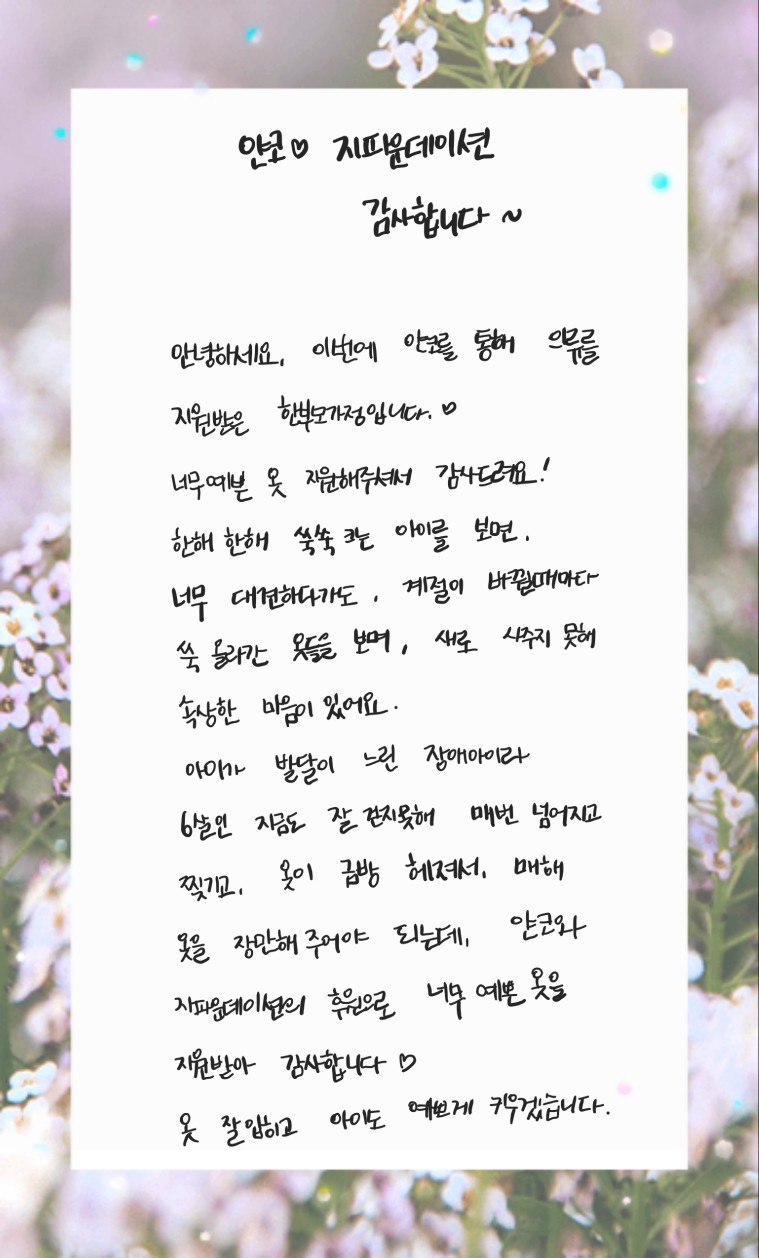 얀코♡ 지파운데이션
감사합니다~
안녕하세요, 이번에 얀코를 통해 의류를
지원받은 한부모가정입니다.♡
너무 예쁜 옷 지원해주셔서 감사드려요!
한해 한해 쑥쑥 크는 아이를 보면,
너무 대견하다가도, 계절이 바뀔때마다
쑥 올라간 옷들을 보며, 새로 사주지 못해
속상한 마음이 있어요.
아이가 발달이 느린 장애아이라
6살인 지금도 잘 걷지못해 매번 넘어지고
찢기고, 옷이 금방 헤져서, 매해
옷을 장만해 주어야 되는데, 얀코와
지파운데이션의 후원으로 너무 예쁜 옷을
지원받아 감사합니다♡
옷 잘입히고 아이도 예쁘게 키우겠습니다.